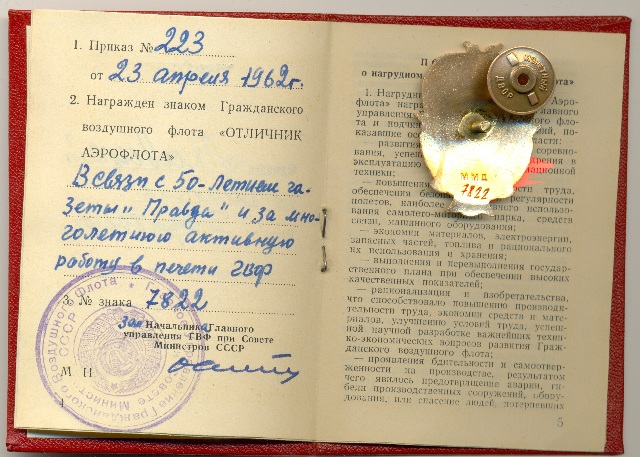 1. Приказ № 223
от 23 апреля 1962г.
2. Награжден знаком Гражданского
воздушного флота «ОТЛИЧНИК
АЭРОФЛОТА»
В связи с 50-летием га-
зеты „Правда" и за мно-
голетнюю активную
работу в печати ГВФ
3. № знака 7822
Зам Начальника Главного
управления ГВФ при Совете
Министров СССР
М П
4
П
о нагрудном
лота»
1. Нагрудн
Аэро-
флота» награ
главного
управления
фло-
та и подчин
ий, по-
казавшие осо
асти:
— развития
соревно-
вания, успеш
дрения в
эксплуатацию
ационной
техники;
— повышени
ости труда,
обеспечения безо
регулярности
полетов, наиболее
о использо-
вания самолето-мото
арка, средств
связи, машинного оборудования;
— экономии материалов, электроэнергии,
запасных частей, топлива и рационального
их использования и хранения;
— выполнения и перевыполнения государ-
ственного плана при обеспечении высоких
качественных показателей;
— рационализации и изобретательства,
что способствовало повышению производи-
тельности труда, экономии средств и мате-
риалов, улучшению условий труда, успеш-
ной научной разработке важнейших техни-
ко-экономических вопросов развития Граж-
данского воздушного флота;
— проявления бдительности и самоотвер-
женности на производстве, результатом
чего явилось предотвращение аварии, ги-
бели производственных сооружений, обору-
дования, или спасение людей, потерпевших
5
МОНЕТНЫЙ
ДВОР
ММД
7822